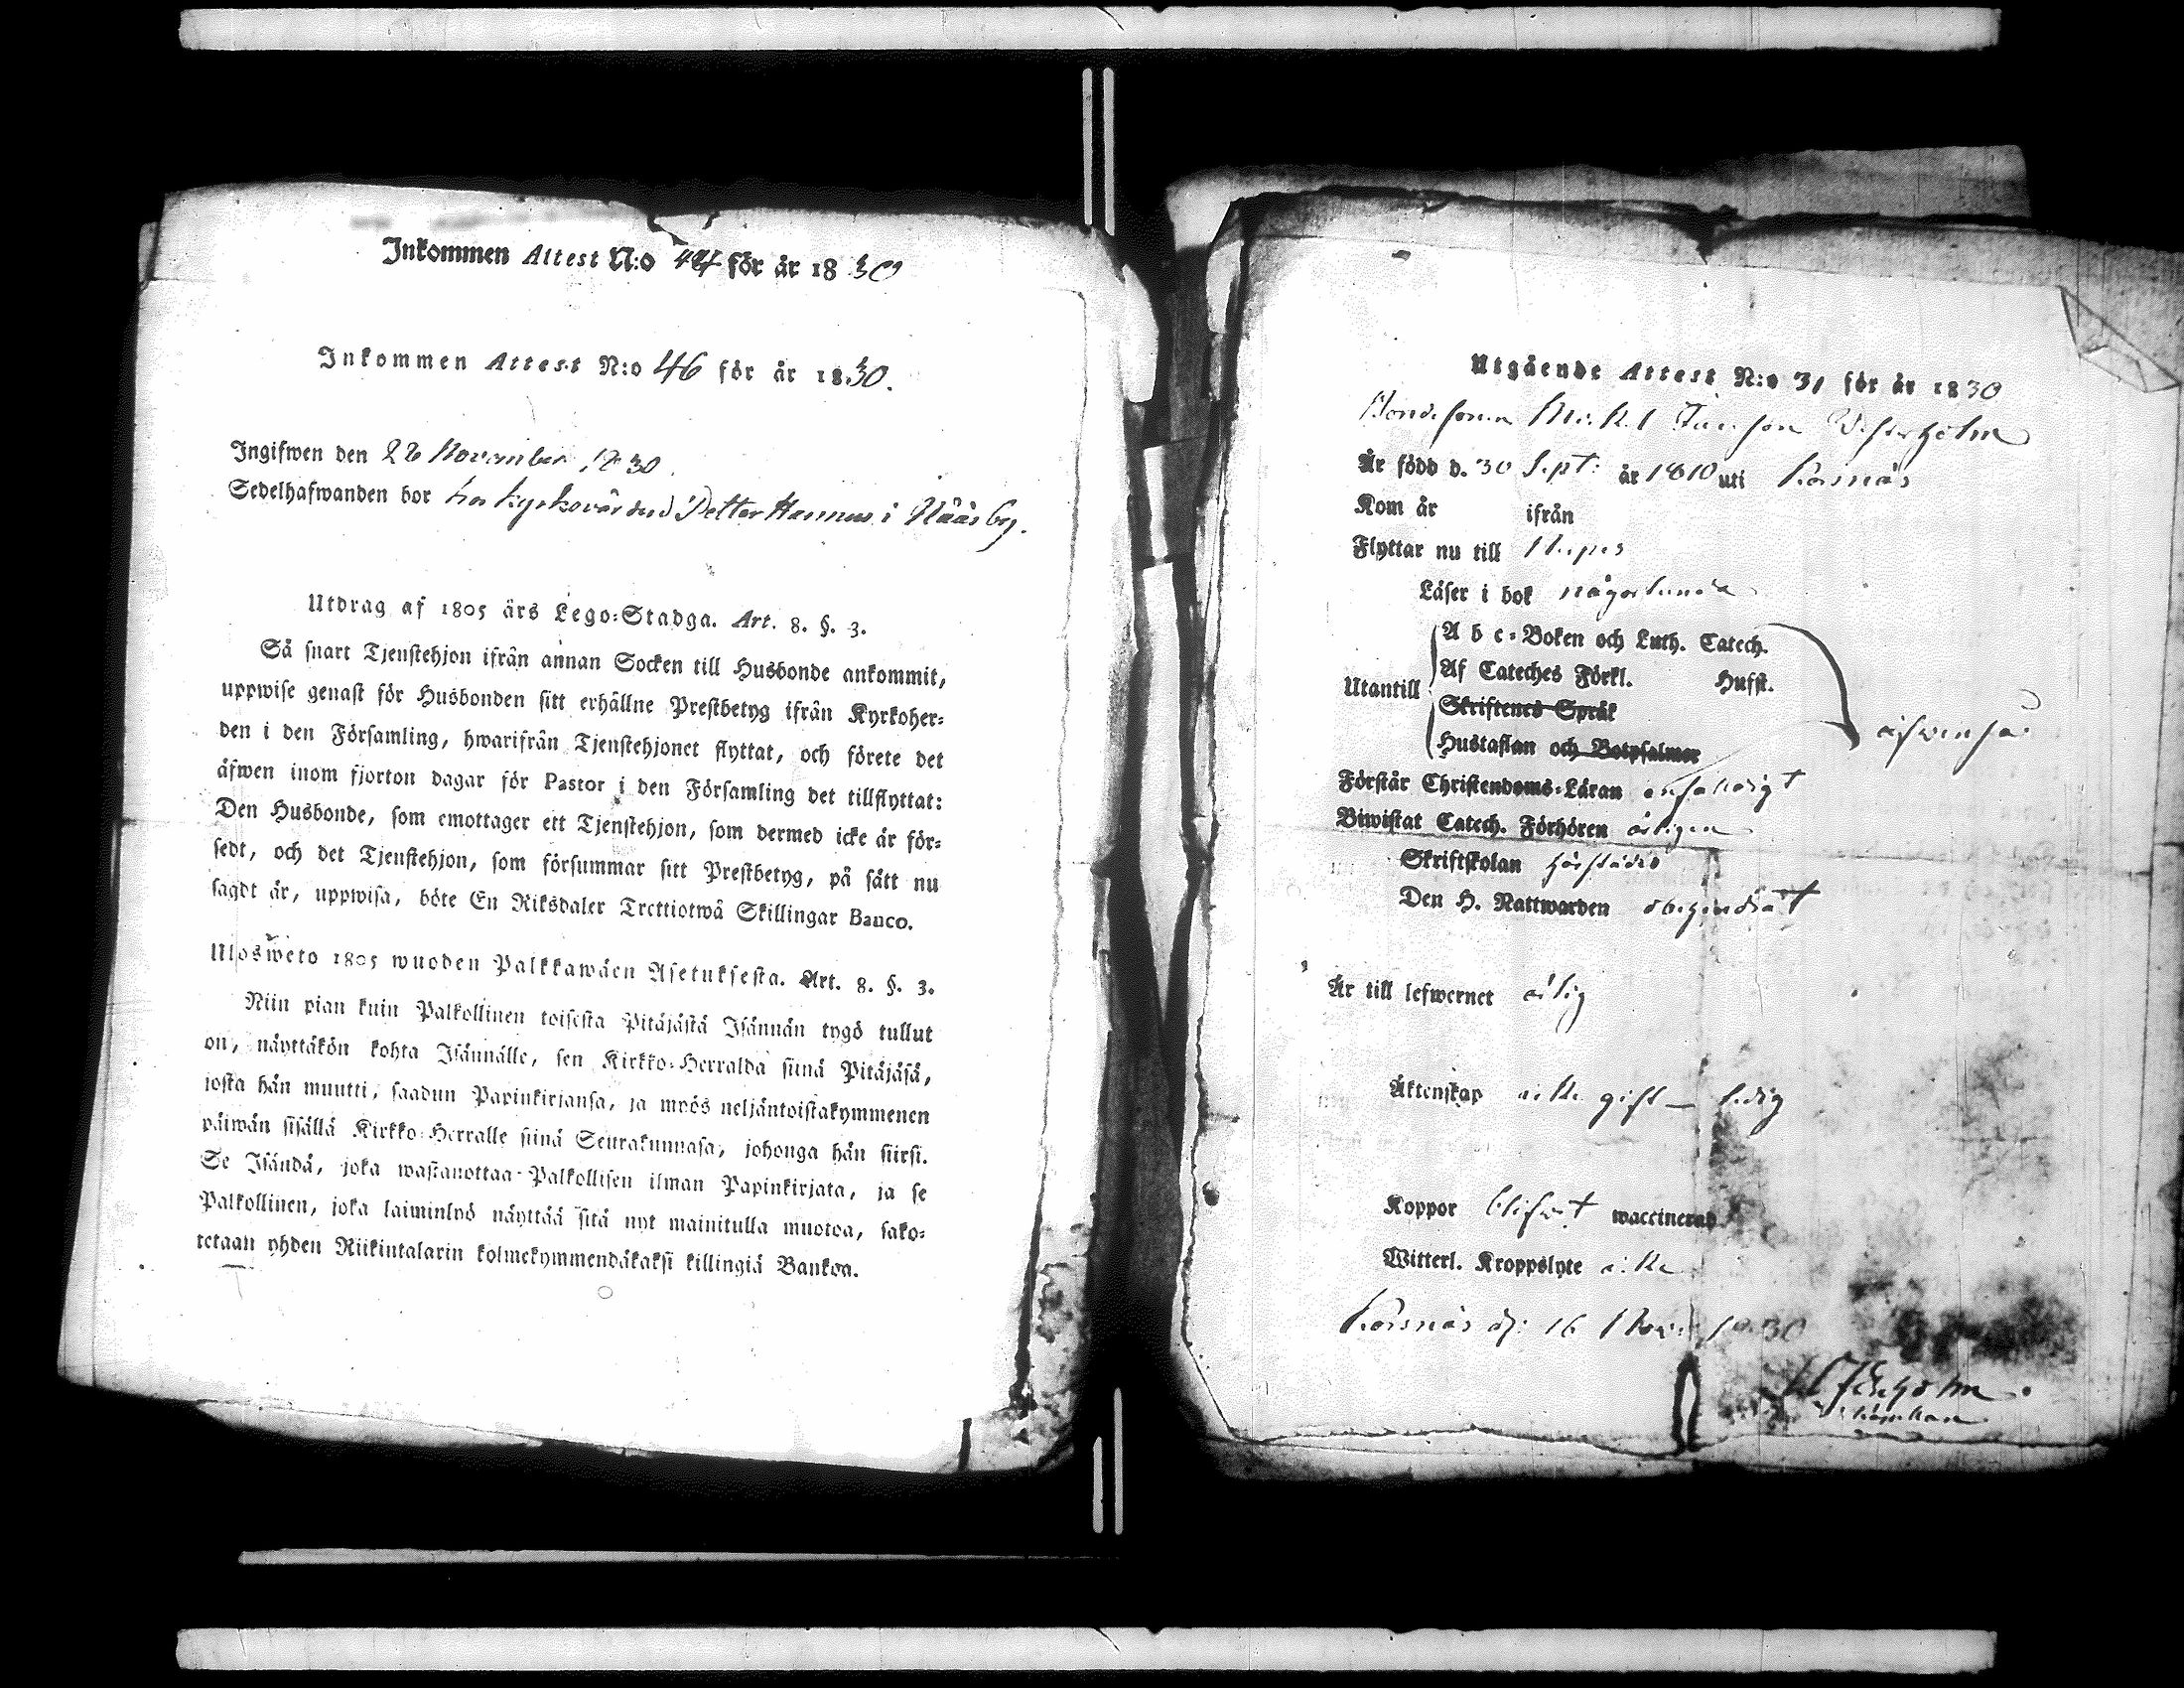 Inkommen Attest N:o 44 för år 1830
Inkommen Attest N:o 46 för år 1830.
Ingifwen den 28 November 1830.
Sedelhafwanden bor hos kyrkovärden Petter Hannus i Nääsby.
Utdrag af 1805 års Lego-Stadga. Art. 8. §. 3.
Så snart Tjenstehjon ifrån annan Socken till Husbonde ankommit,
uppwise genast för Husbonden sitt erhållne Prestbetyg ifrån Kyrkoher-
den i den Församling, hwarifrån Tjenstehjonet flyttat, och förete det
äfwen inom fjorton dagar för Pastor i den Församling det tillflyttat:
Den Husbonde, som emottager ett Tjenstehjon, som dermed icke är för-
sedt, och det Tjenstehjon, som försummar sitt Prestbetyg, på sätt nu
sagdt är, uppwisa, böte En Riksdaler Trettiotwå Skillingar Banco.
Ulosweto 1805 wuoden Palkkawäen Asetuksesta. Art. 8. §. 3.
Niin pian kuin Palkollinen toisesta Pitäjästä Isännän tygö tullut
on, näyttäkön kohta Isännälle, sen Kirkko-Herralda siinä Pitäjäsä,
josta hän muutti, saadun Papinkirjansa, ja myös neljäntoistakymmenen
päiwän sisällä Kirkko-Herralle siinä Seurakunnasa, johonga hän siirsi.
Se Isändä, joka wastanottaa Palkollisen ilman Papinkirjata, ja se
Palkollinen, joka laiminlyö näyttää sitä nyt mainitulla muotoa, sako-
tetaan yhden Riikintalarin kolmekymmendäkaksi killingiä Bankoa.
Utgående Attest N:o 31 för år 1830
Bondesonen Mickel Westerholm
Är född d. 30 Sept: år 1810 uti Korsnäs
Kom år ifrån
Flyttar nu till Nerpes
Läser i bok någorlunda
A b c-Boken och Luth. Catech.
Af Cateches Förkl. Hufst.
Utantill
Skriftenes Språk
Hustaflan och Botpsalmer
äfwenså
Förstår Christendoms-Läran enfaldigt
Biwistat Catech. Förhören årligen
Skriftskolan härstädes
Den H. Nattwarden obehindrat
Är till lefwernet ärlig
Äktenskap icke gift — ledig
Koppor blifwit waccinerad
Witterl. Kroppslyte icke
Korsnäs d: 16 Nov: 1830